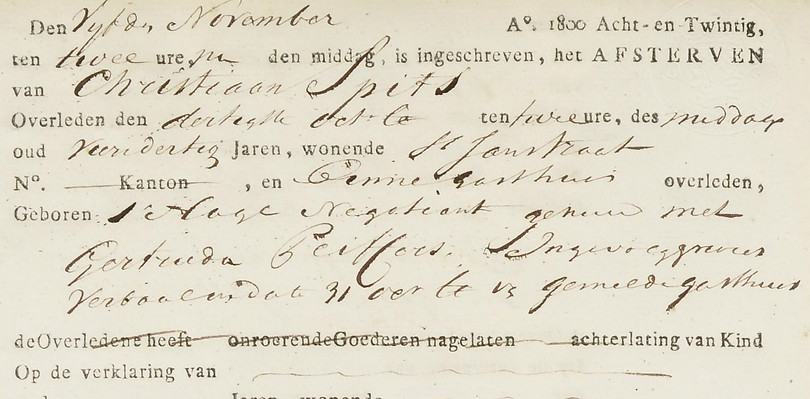 Den Vyfden November Ao. 1800 Acht-en-Twintig,
ten twee ure, na den middag, is ingeschreven, het AFSTERVEN
van Christiaan Spits
Overleden den dertigste octb ten twee ure, des middags
oud vierendertig Jaren, wonende St Janstraat
No. Kanton , en Binnegasthuis overleden,
Geboren s'Hage Negotiant gehuwd met
Gertruda
31 oct gemeldegasthuis
de Overledene heeft onroerende Goederen nagelaten achterlating van Kind
Op de verklaring van
Jaren, wonende